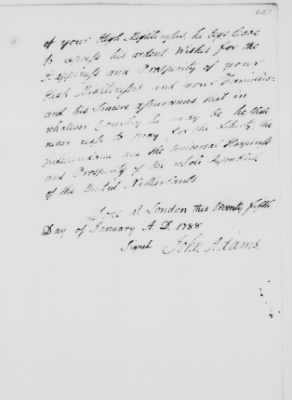 of your High Mightinesses, he begs Leave
to express his ardent Wishes for the
Happiness and Prosperity of your
High Mightinesses and your Families
and his Sincere assurances that in
whatever Country he may be he shall
never cease to pray for the Liberty the
independence and the universal Happiness
and Prosperity of the whole Republick
of the United Netherlands
Done at London this twenty fifth
Day of January A.D. 1788
Signed John Adams.